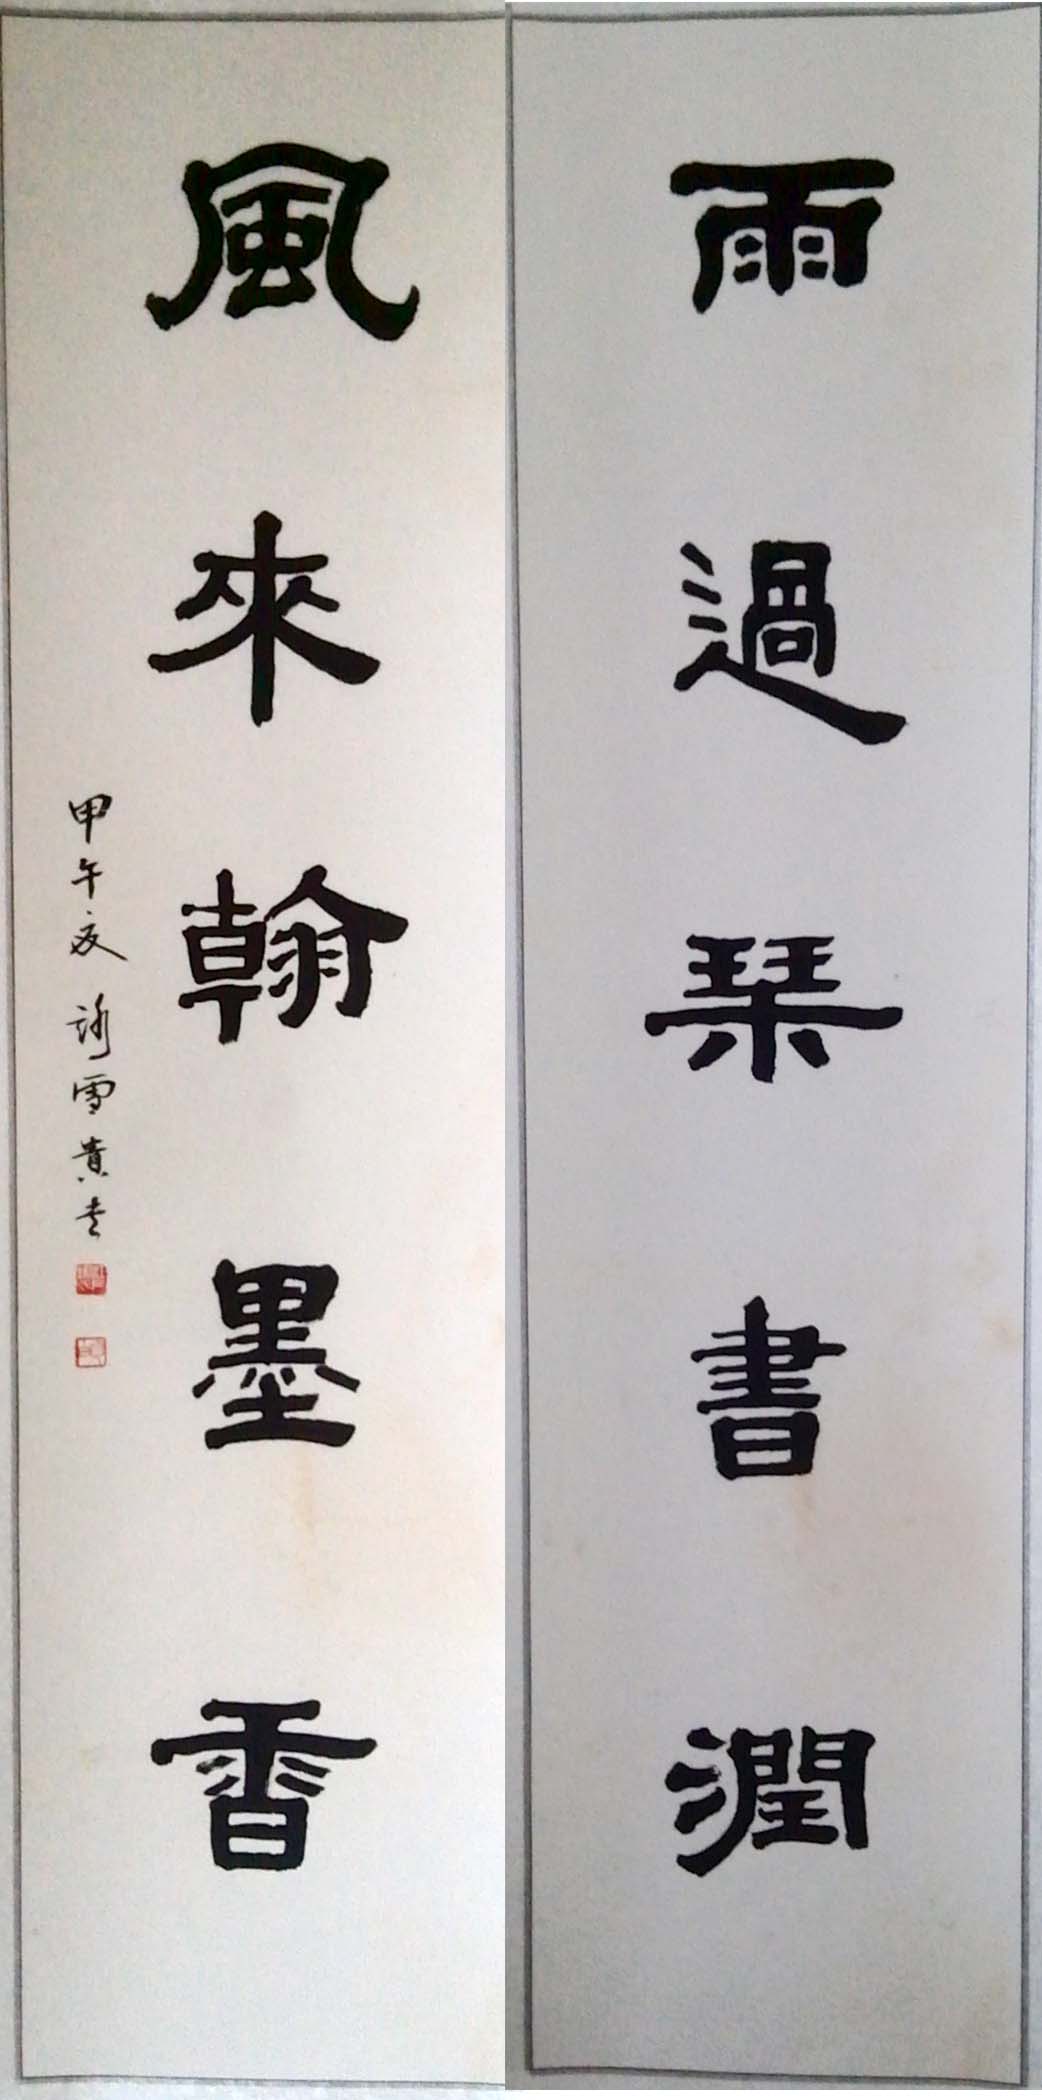 雨過琹書潤
風來翰墨香
甲午夏 許雪貴書